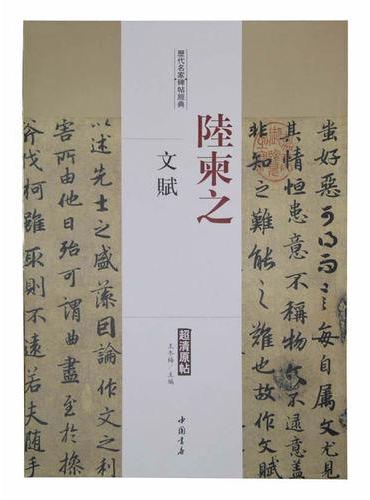 歷代名家碑帖經典
陸柬之
文賦
超清原帖
王冬梅／主編
中国书店
蚩好惡可得而言每自属文尤見
其情恒患意不稱物文不逮意盖
非知之難能之難也故作文賦
以述先士之盛藻因論作文之利
害所由他日殆可謂曲盡至於操
斧伐柯雖取則不遠若夫随手